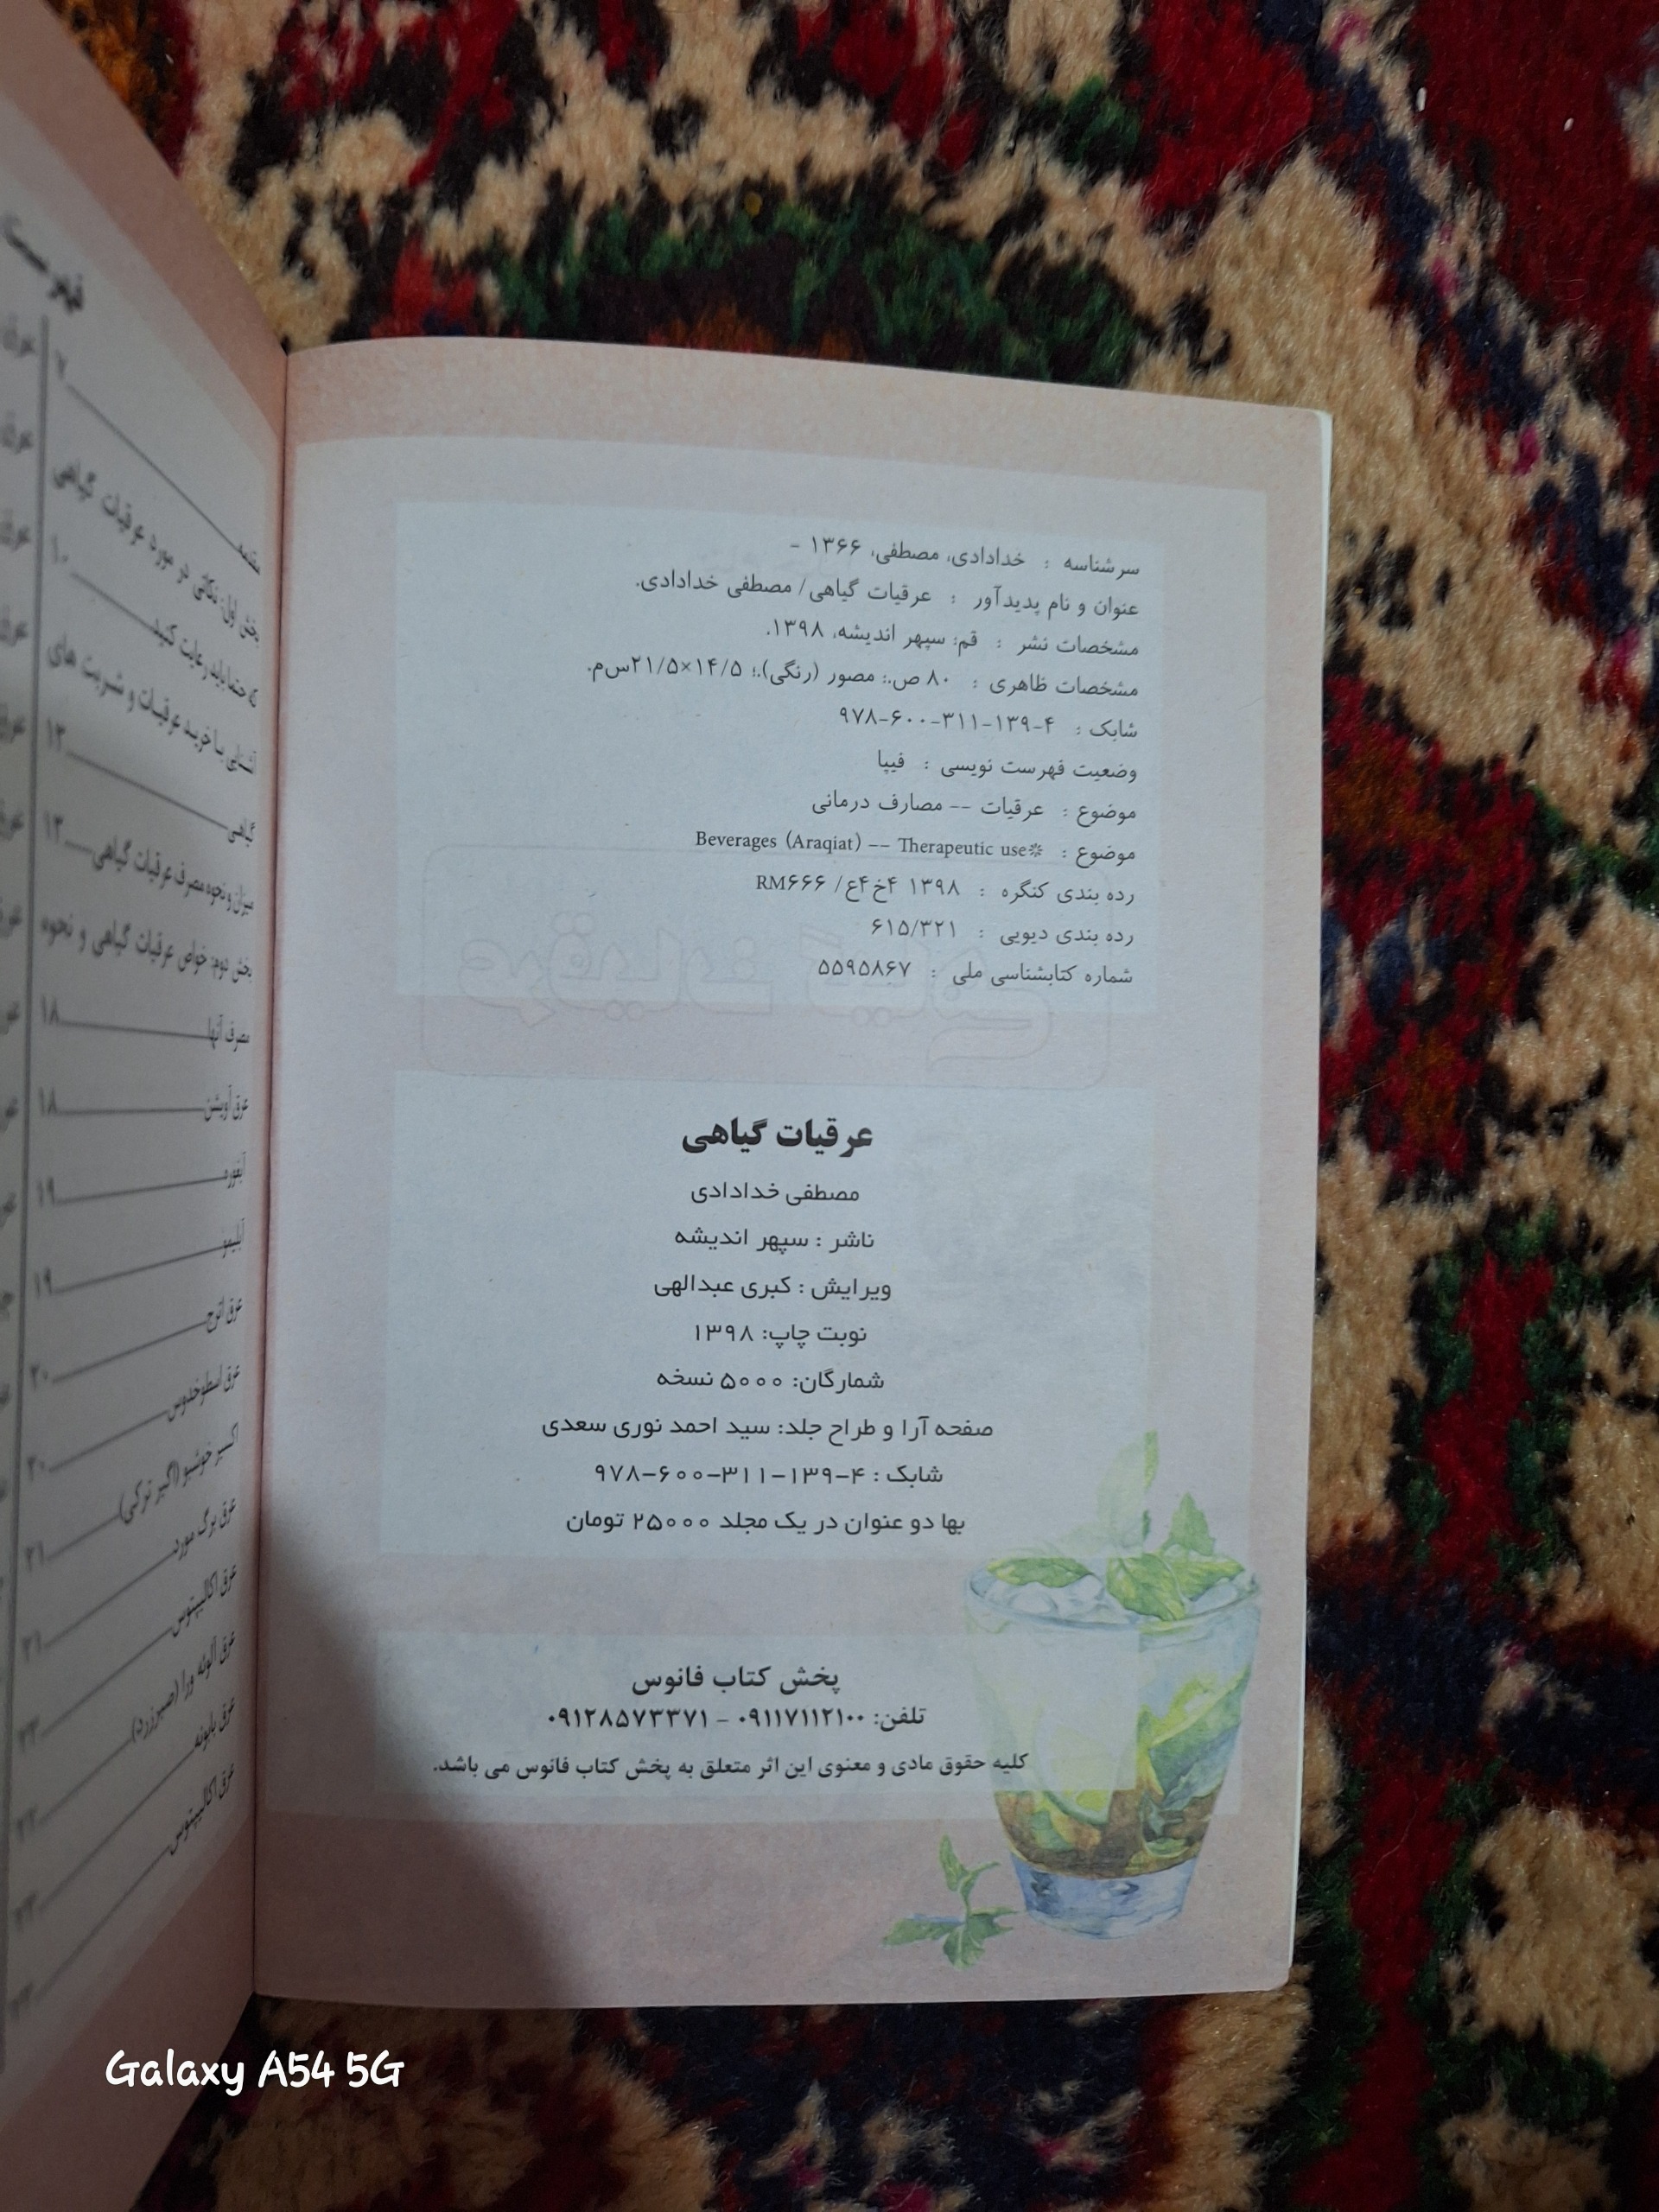 سرشناسه : خدادادی، مصطفی، ۱۳۶۶ -
عنوان و نام پدیدآور : عرقیات گیاهی/ مصطفی خدادادی.
مشخصات نشر : قم: سپهر اندیشه، ۱۳۹۸.
مشخصات ظاهری : ۸۰ ص.: مصور (رنگی).؛ ۱۴/۵×۲۱/۵س‌م.
شابک : ۹۷۸-۶۰۰-۳۱۱-۱۳۹-۴
وضعیت فهرست نویسی : فیپا
موضوع : عرقیات -- مصارف درمانی
موضوع : Beverages (Araqiat) -- Therapeutic use*
رده بندی کنگره : ۱۳۹۸ ۴خ۴ع/ RM۶۶۶
رده بندی دیویی : ۶۱۵/۳۲۱
شماره کتابشناسی ملی : ۵۵۹۵۸۶۷
عرقیات گیاهی
مصطفی خدادادی
ناشر : سپهر اندیشه
ویرایش : کبری عبدالهی
نوبت چاپ: ۱۳۹۸
شمارگان: ۵۰۰۰ نسخه
صفحه آرا و طراح جلد: سید احمد نوری سعدی
شابک : ۹۷۸-۶۰۰-۳۱۱-۱۳۹-۴
بها دو عنوان در یک مجلد ۲۵۰۰۰ تومان
پخش کتاب فانوس
تلفن: ۰۹۱۱۷۱۱۲۱۰۰ - ۰۹۱۲۸۵۷۳۳۷۱
کلیه حقوق مادی و معنوی این اثر متعلق به پخش کتاب فانوس می باشد.
فهرست
مقدمه ۷
بخش اول: نکاتی در مورد عرقیات گیاهی
که حتما باید رعایت کنید ۱۰
آشنایی با خرید عرقیات و شربت های
گیاهی ۱۳
میزان و نحوه مصرف عرقیات گیاهی ۱۳
بخش دوم: خواص عرقیات گیاهی و نحوه
مصرف آنها ۱۸
عرق آویشن ۱۸
آبغوره ۱۹
آبلیمو ۱۹
عرق اترج ۲۰
عرق اسطوخدوس ۲۰
اکسیر خوشبو (اگیر ترکی) ۲۱
عرق برگ مورد ۲۱
عرق اکالیپتوس ۲۲
عرق آلوئه ورا (صبر زرد) ۲۲
عرق بابونه ۲۳
عرق اکالیپتوس
Galaxy A54 5G